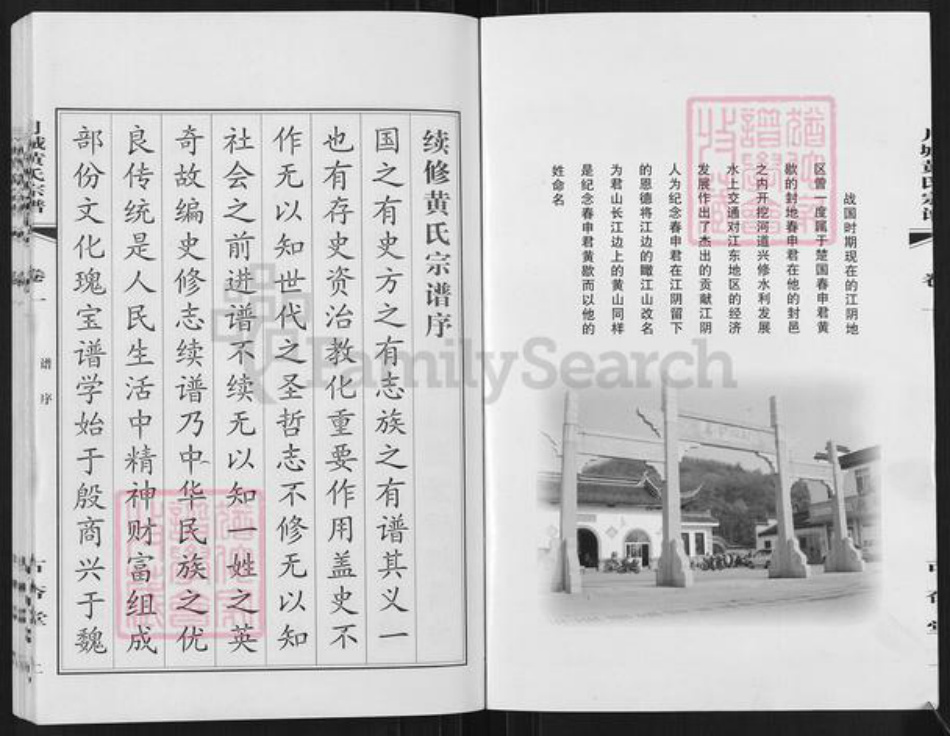 战国时期现在的江阴地
区曾一度属于楚国春申君黄
歇的封地春申君在他的封邑
之内开挖河道兴修水利发展
水上交通对江东地区的经济
发展作出了杰出的贡献江阴
人为纪念春申君在江阴留下
的恩德将江边的瞰江山改名
为君山长江边上的黄山同样
是纪念春申君黄歇而以他的
姓命名
续修黄氏宗谱序
国之有史方之有志族之有谱其义一
也有存史资治教化重要作用盖史不
作无以知世代之圣哲志不修无以知
社会之前进谱不续无以知一姓之英
奇故编史修志续谱乃中华民族之优
良传统是人民生活中精神财富组成
部份文化瑰宝谱学始于殷商兴于魏
城黄氏宗谱
卷一
谱序
FamilySearch